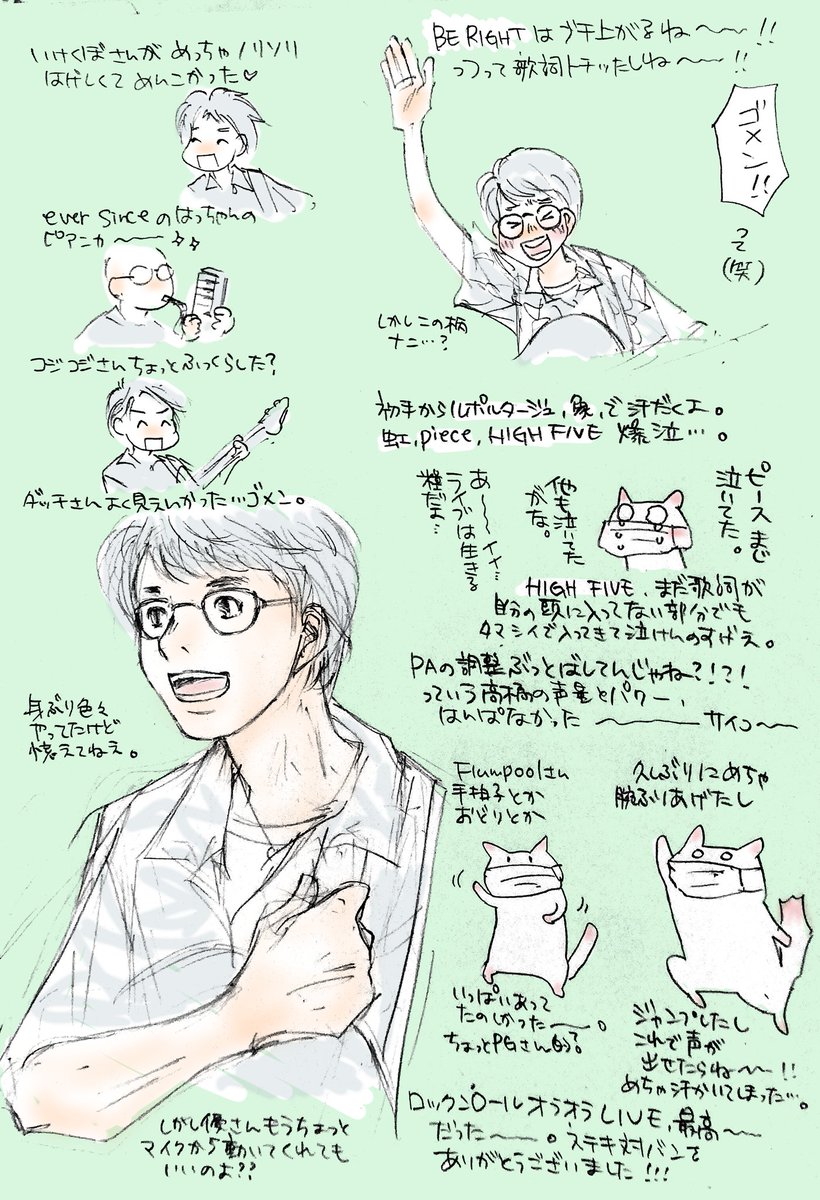 いけくぼさんが めっちゃノリノリ
はげしくて めんこかった♡
ever sinceのはっちゃんの
ピアニカ〜〜〜
コジコジさんちょっとふっくらした?
ダッチさんよく見えんかった…ゴメン。
身ぶり色々
やってたけど
憶えてねえ。
しかし優さんもうちょっと
マイクから動いてくれても
いいのよ??
BE RIGHTはブチ上がるね〜〜!!
っつって歌詞トチッたしね〜〜!!
ゴメン!!
って
(笑)
しかしこの柄
ナニ…?
初手からルポルタージュ,象,で汗だくよ。
虹,piece,HIGH FIVE 爆泣…。
ピースまじ
泣いてた。
他も泣いてた
がな。
あ〜〜イイ…
ライブは生きる
糧だま…
HIGH FIVE、まだ歌詞が
自分の頭に入ってない部分でも
タマシイで入ってきて泣けんのすげえ。
PAの調整ぶっとばしてんじゃね?!?!
っていう高橋の声量とパワー、
はんぱなかった〜〜〜サイコ〜〜
Flumpoolさん
手拍子とか
おどりとか
いっぱいあって
たのしかった〜〜。
ちょっとPGさん的?
久しぶりにめちゃ
腕ふりあげたし
ジャンプしたし
これで声が
出せたらね〜〜!!
めちゃ汗かいてしまった…。
ロックンロールオラオラLIVE,最高〜〜
だった〜〜。ステキ対バンを
ありがとうございました!!!